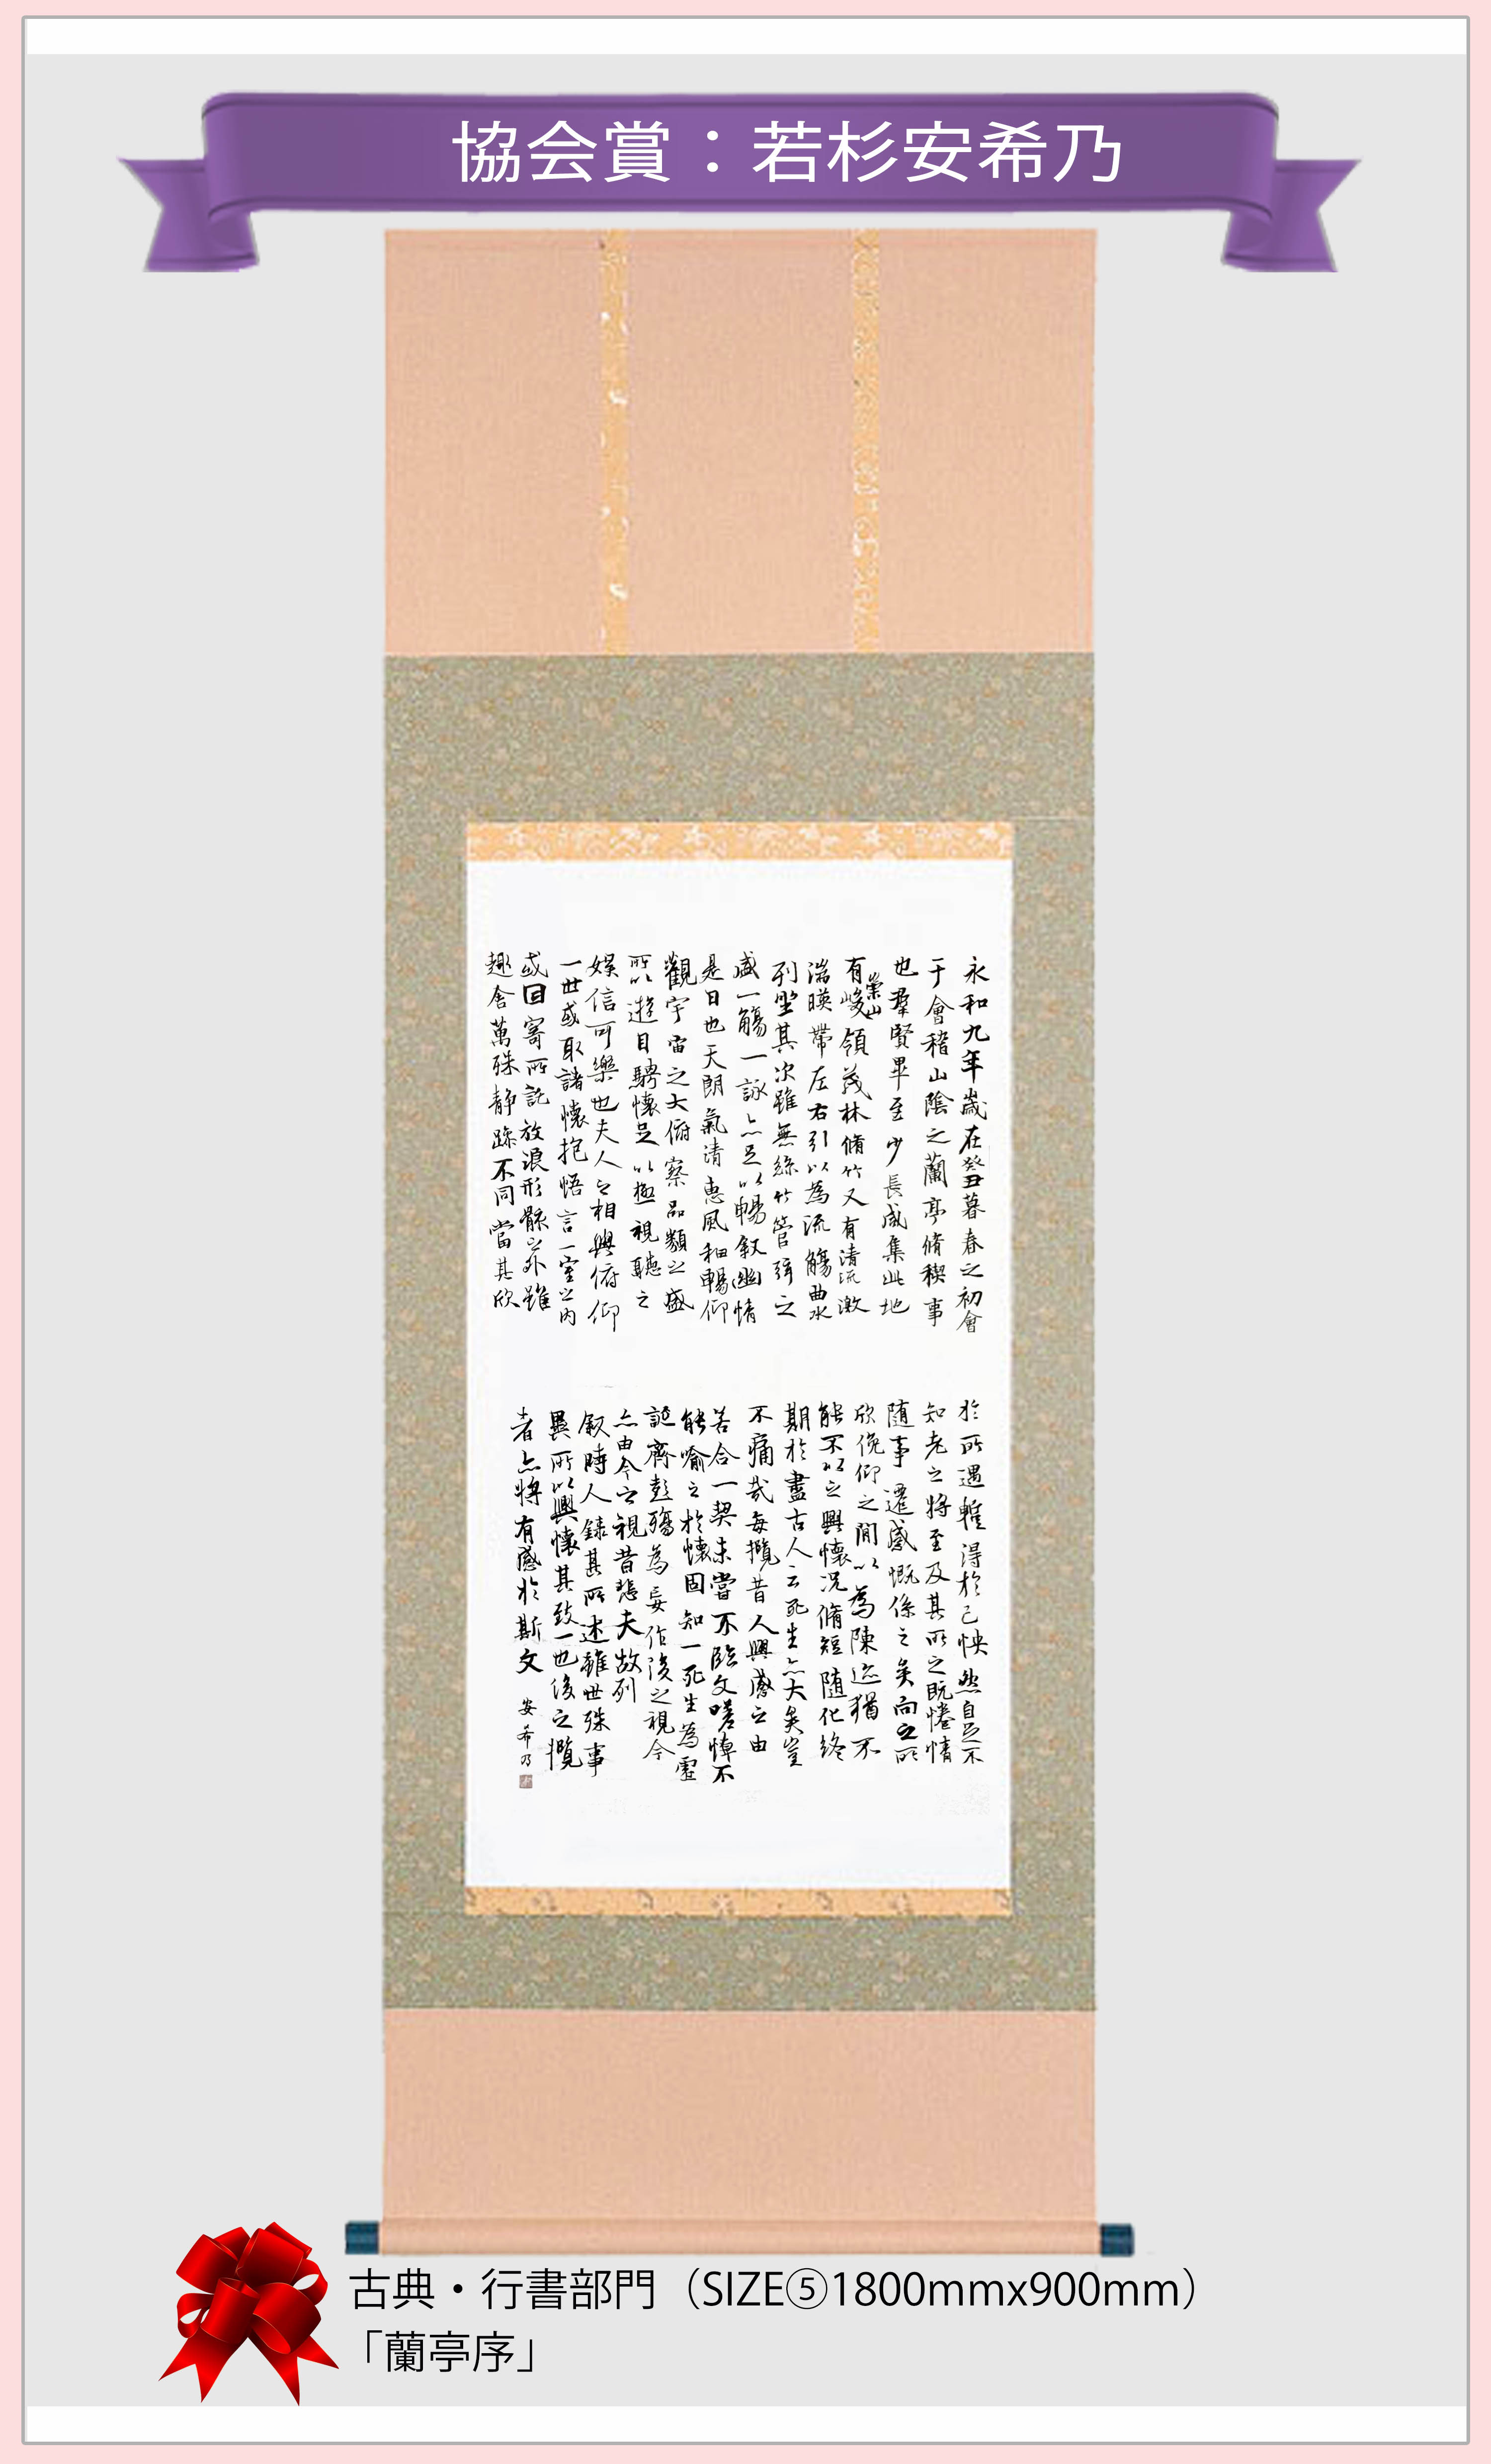 協会賞：若杉安希乃
永和九年歲在癸丑暮春之初會
于會稽山陰之蘭亭脩稧事
也羣賢畢至少長咸集此地
有崇山峻領茂林脩竹又有清流激
湍暎帶左右引以為流觴曲水
列坐其次雖無絲竹管弦之
盛一觴一詠亦足以暢叙幽情
是日也天朗氣清惠風和暢仰
觀宇宙之大俯察品類之盛
所以遊目騁懷足以極視聽之
娛信可樂也夫人之相與俯仰
一世或取諸懷抱悟言一室之內
或因寄所託放浪形骸之外雖
趣舍萬殊静躁不同當其欣
於所遇蹔得於己怏然自足不
知老之將至及其所之既惓情
随事遷感慨係之矣向之所
欣俛仰之閒以為陳迹猶不
能不以之興懷況脩短随化終
期於盡古人云死生亦大矣豈
不痛哉每攬昔人興感之由
若合一契未嘗不臨文嗟悼不
能喻之於懷固知一死生為虛
誕齊彭殤為妄作後之視今
亦由今之視昔悲夫故列
叙時人錄其所述雖世殊事
異所以興懷其致一也後之攬
者亦將有感於斯文
安希乃
古典・行書部門（SIZE⑤1800mmx900mm）
「蘭亭序」